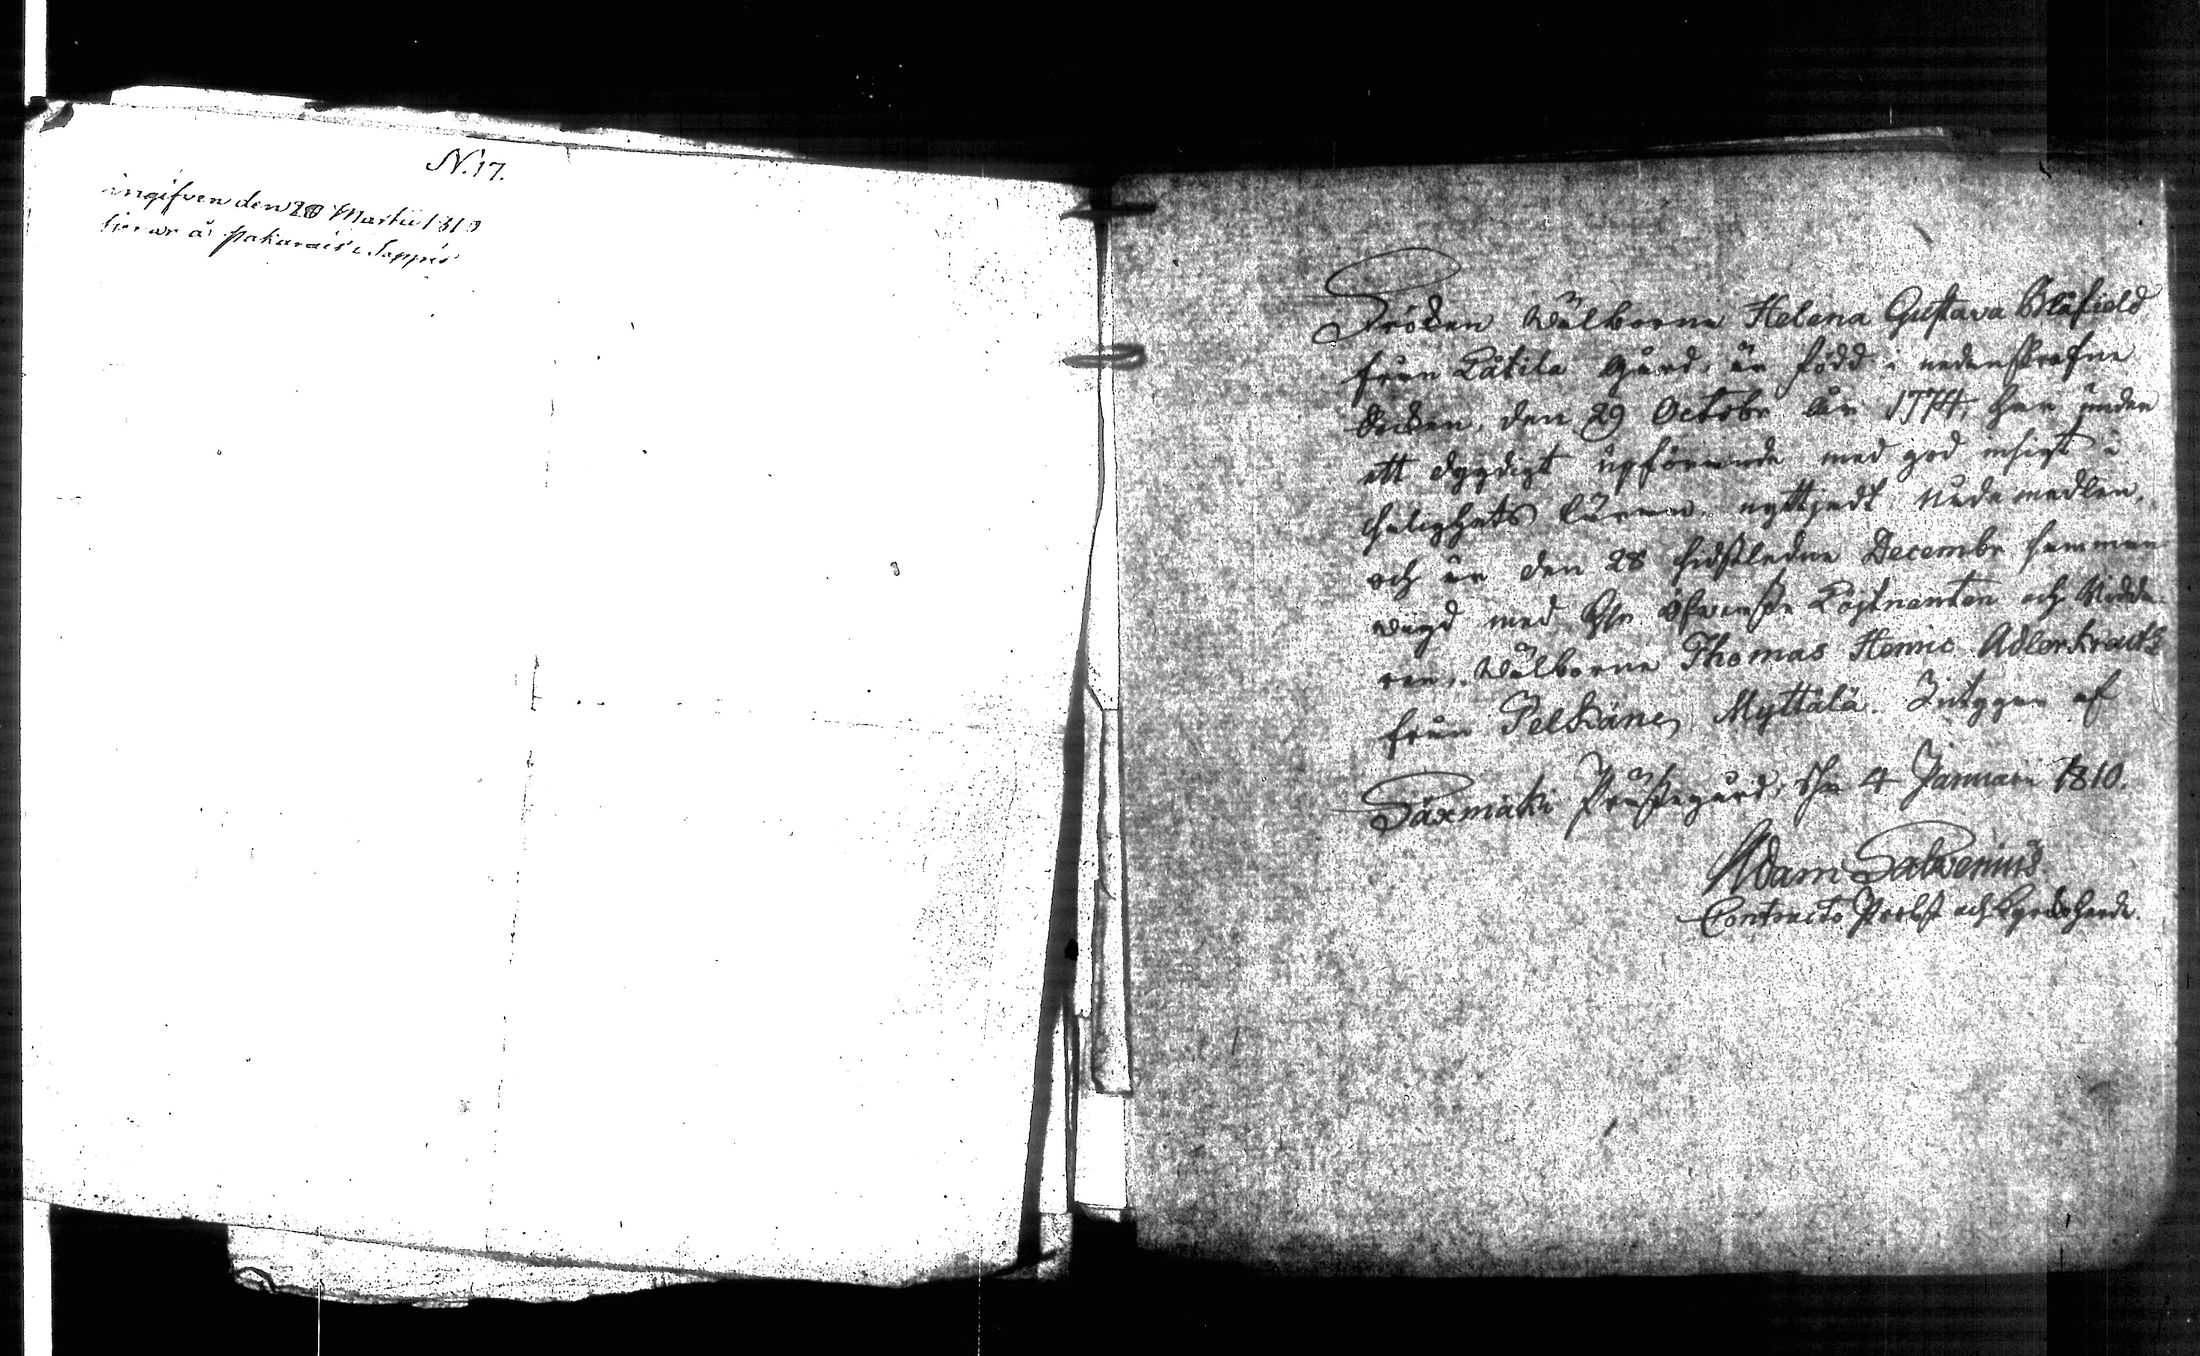 N. 17.
ingifven den 20 Martii 1810
Fröken Wälborne Helena Gustava Blåfield
från Låtila Gård, är född i nedanskrefne
Socken, den 29 Octobr år 1774, har under
ett dygdigt upförande med god insigt i
salighets läran nyttjadt Nådemedlen,
och är den 28 sidstledne Decembr samman
wigd med Hr Öfverste Löjtnanten och Ridda-
ren, Wälborne Thomas Henric Adlerkreutz
från Pelkäne, Myttälä. Intygar af
Säxmäki Prästegård, d 4 Januari 1810.
Adam Salvenius
Contracts Probst och Kyrckoherde.